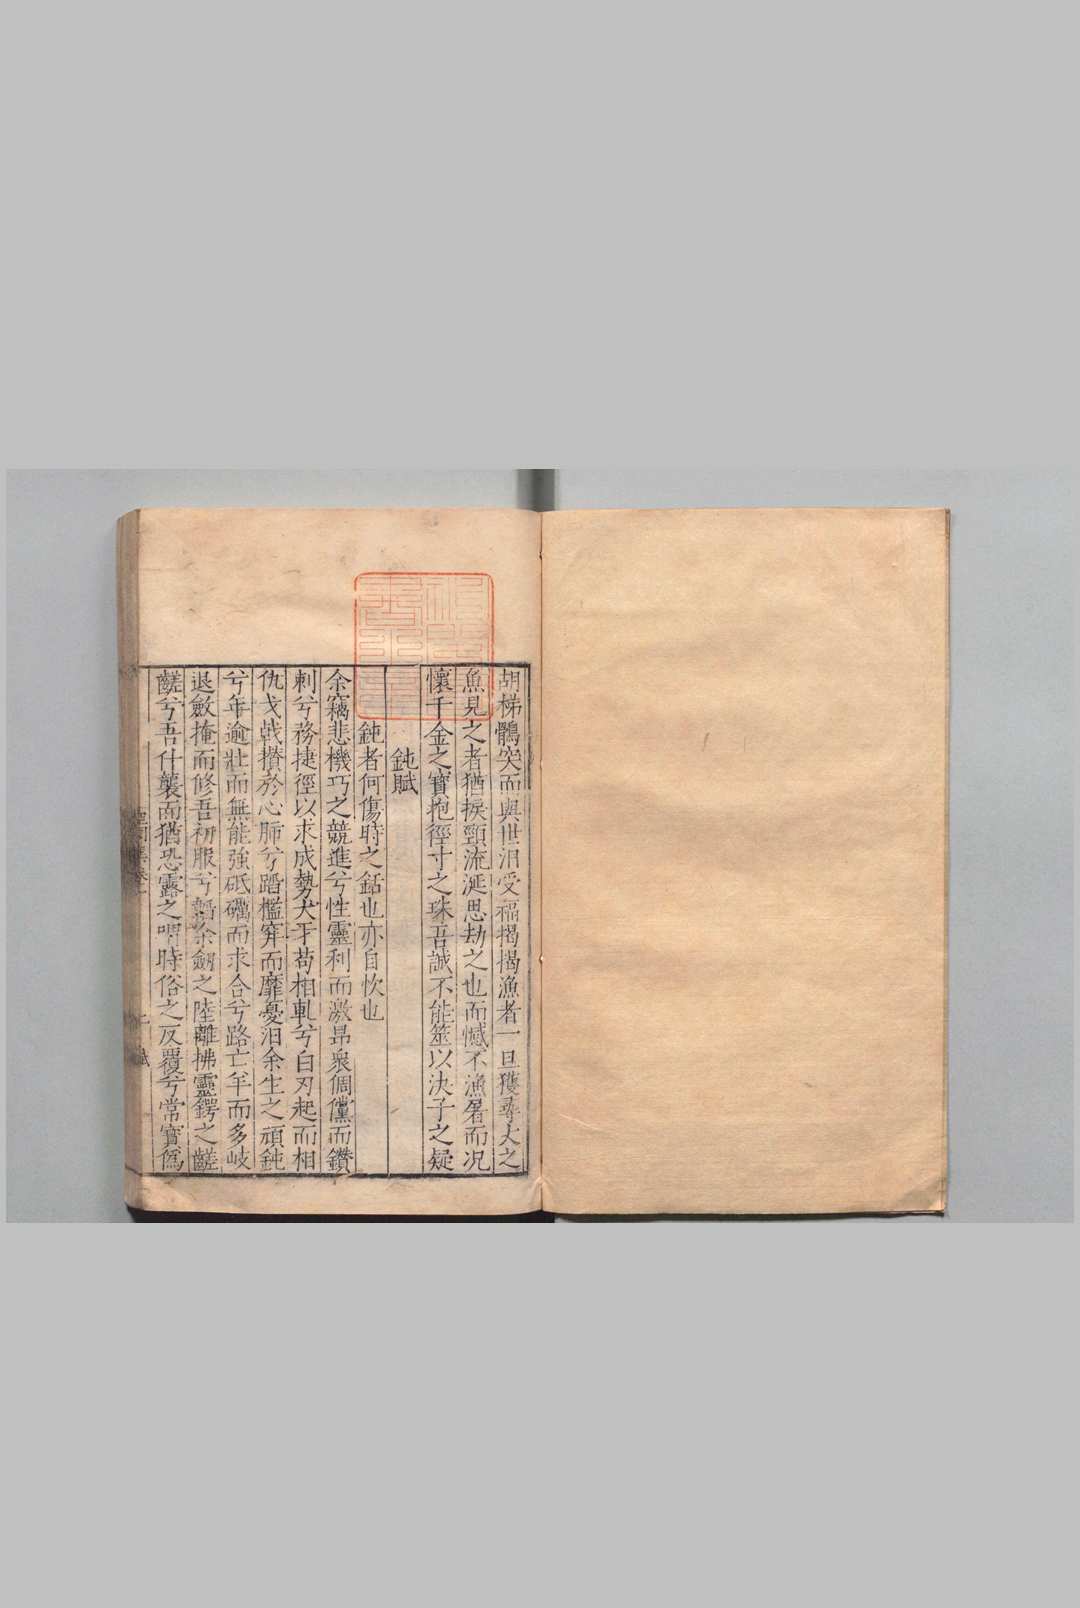 胡梯鶻突而與世汨受福揭揭漁者一旦獲尋丈之
魚見之者猶捩頸流涎思劫之也而憾不漁屠而况
懷千金之寶抱徑寸之珠吾誠不能筮以決子之疑
鈍賦
鈍者何傷時之銛也亦自忺也
余竊悲機巧之競進兮性靈利而激昂衆倜儻而鑽
刺兮務捷徑以求成勢犬牙苟相軋兮白刃起而相
仇戈戟攅於心肺兮蹈檻穽而靡憂汨余生之頑鈍
兮年逾壯而無能強砥礪而求合兮路亡羊而多岐
退斂掩而修吾初服兮韜余劒之陸離拂靈鍔之齹
齹兮吾什襲而猶恐露之喟時俗之反覆兮常寶爲